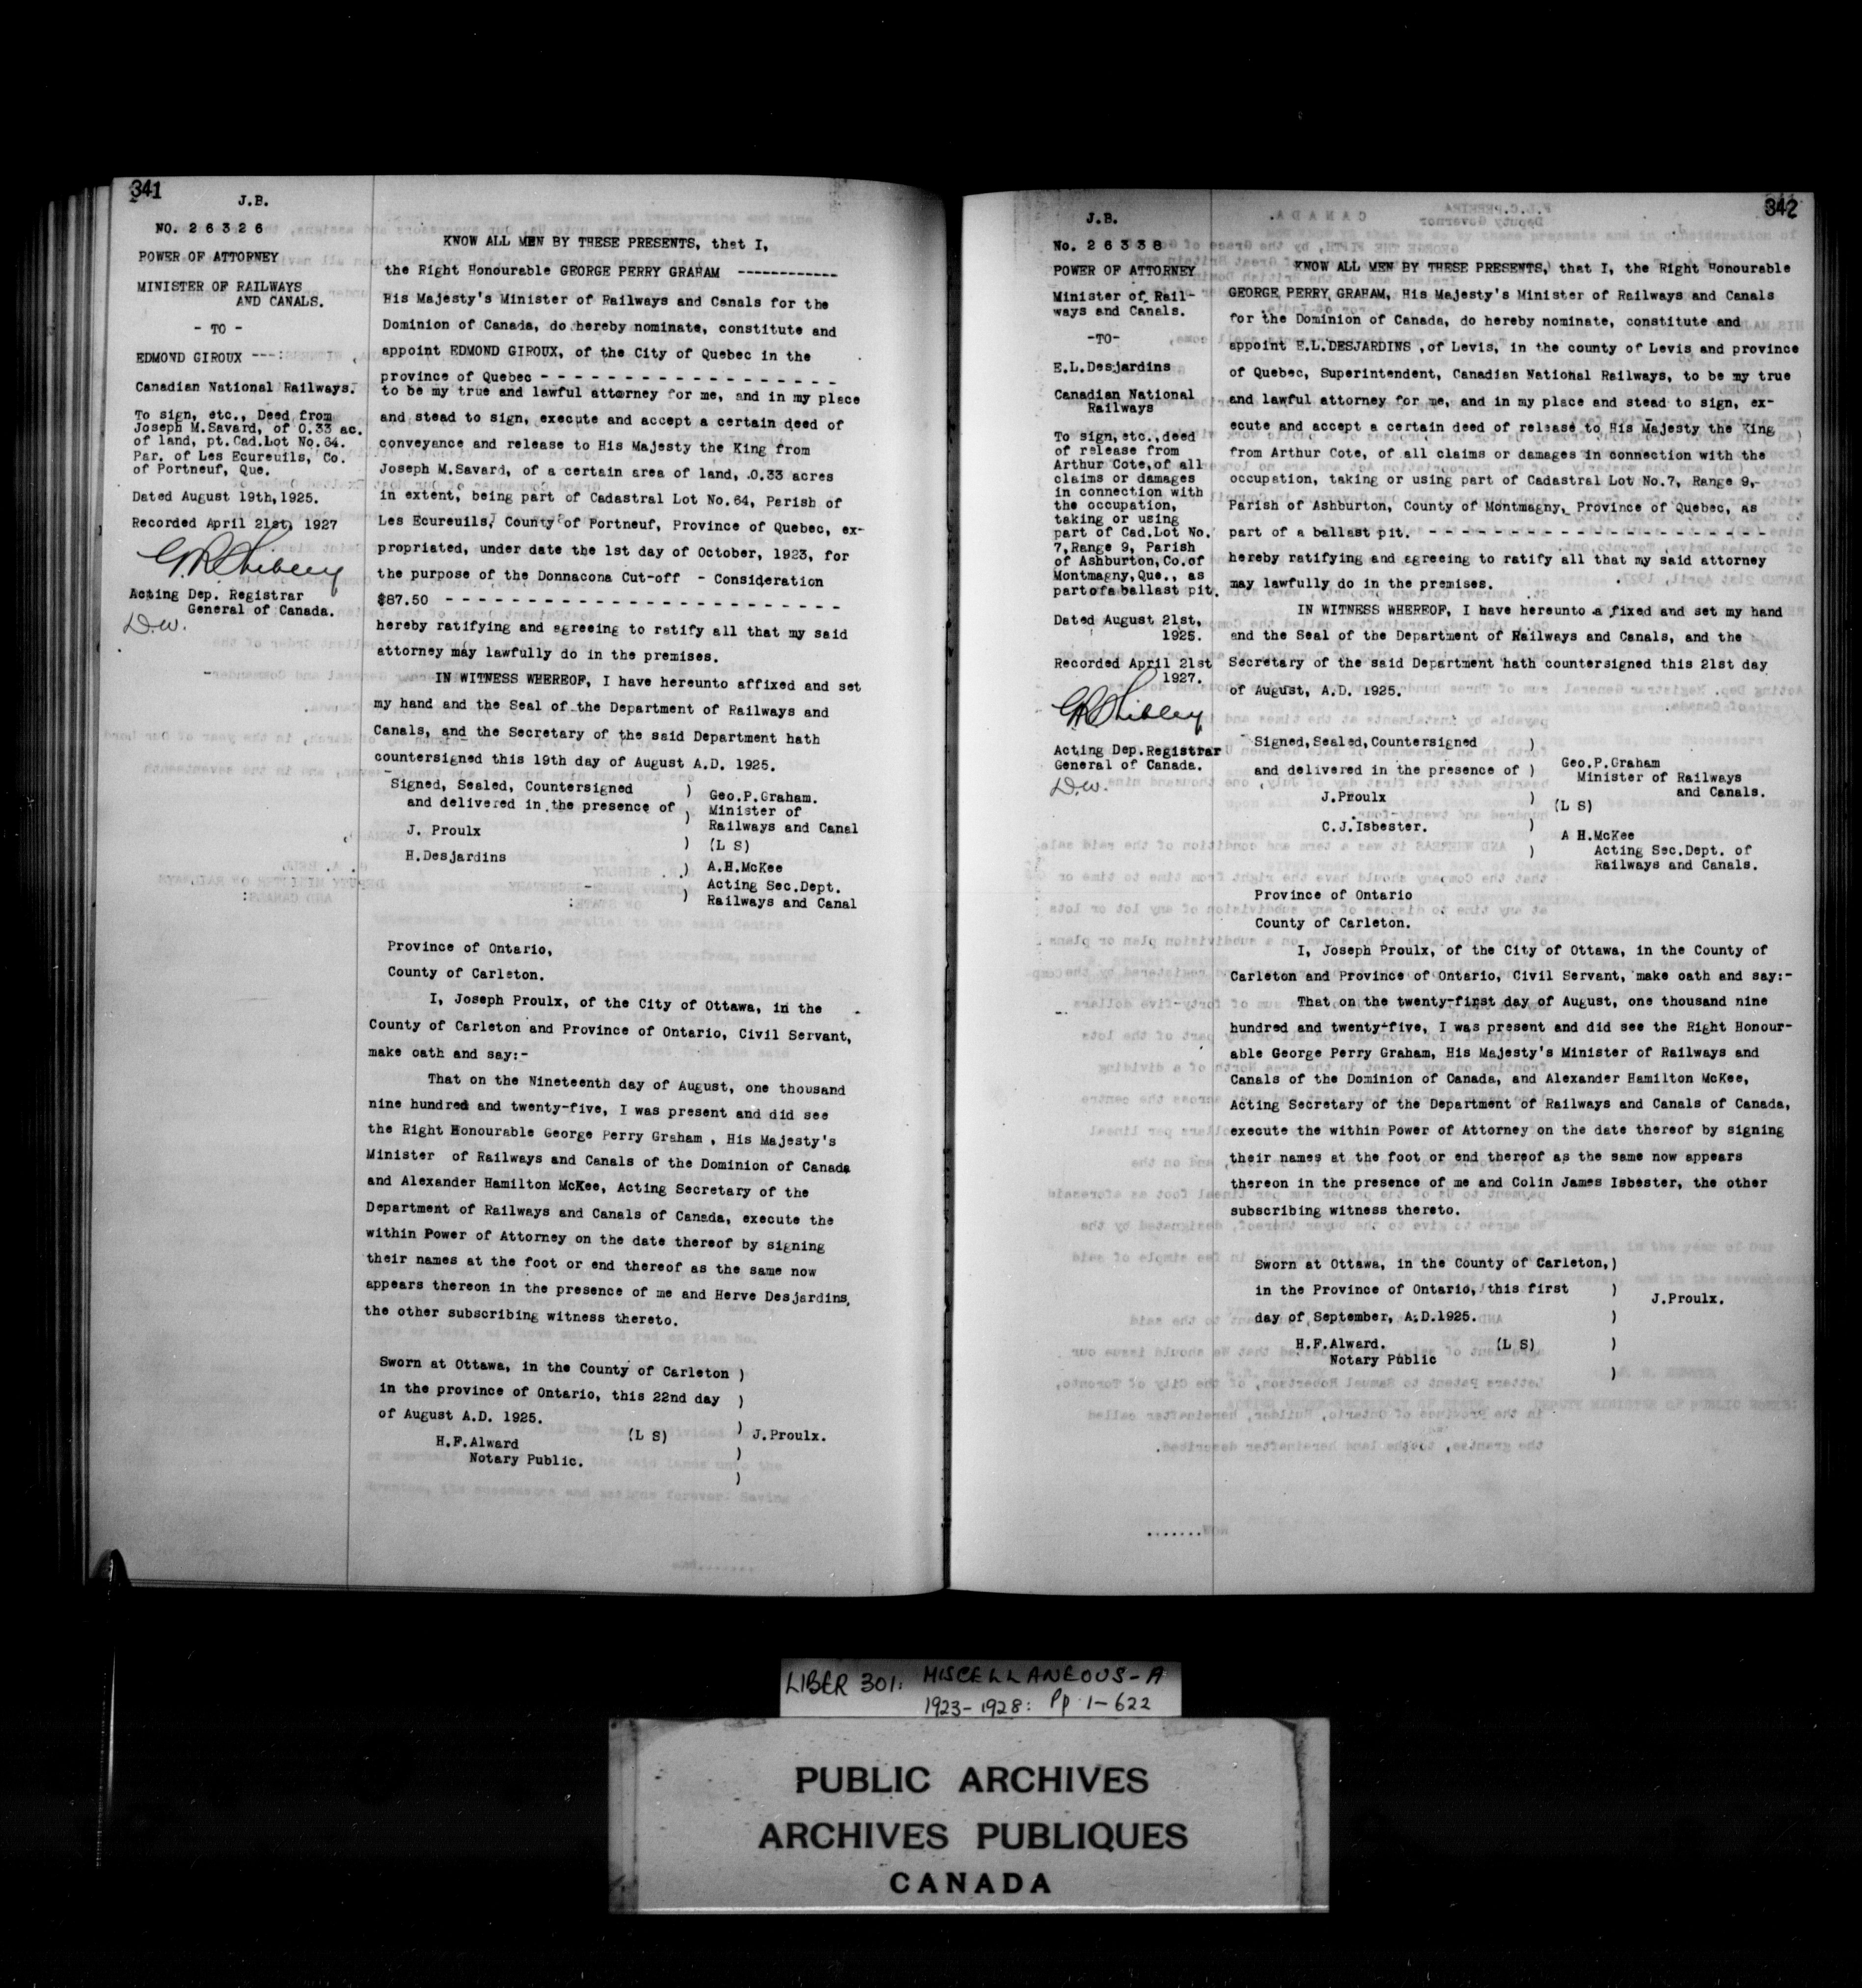 341
J.B.
NO. 2 6 3 2 6
POWER OF ATTORNEY
MINISTER OF RAILWAYS
AND CANALS.
- TO -
EDMOND GIROUX ---:
Canadian National Railways.
To sign, etc., Deed from
Joseph M.Savard, of 0.33 ac.
of land, pt.Cad.Lot No.64.
Par. of Les Ecureuils, Co.
of Portneuf, Que.
Dated August 19th,1925.
Recorded April 21st, 1927
Acting Dep. Registrar
General of Canada.
D.W.
KNOW ALL MEN BY THESE PRESENTS, that I,
the Right Honourable GEORGE PERRY GRAHAM ------------
His Majesty's Minister of Railways and Canals for the
Dominion of Canada, do hereby nominate, constitute and
appoint EDMOND GIROUX, of the City of Quebec in the
province of Quebec - - - - - - - - - - - - - - - - - -
to be my true and lawful attorney for me, and in my place
and stead to sign, execute and accept a certain deed of
conveyance and release to His Majesty the King from
Joseph M.Savard, of a certain area of land, .0.33 acres
in extent, being part of Cadastral Lot No.64, Parish of
Les Ecureuils, County of Portneuf, Province of Quebec, ex-
propriated, under date the 1st day of October, 1923, for
the purpose of the Donnacona Cut-off - Consideration
$87.50 - - - - - - - - - - - - - - - - - - - - - - - -
hereby ratifying and agreeing to ratify all that my said
attorney may lawfully do in the premises.
IN WITNESS WHEREOF, I have hereunto affixed and set
my hand and the Seal of the Department of Railways and
Canals, and the Secretary of the said Department hath
countersigned this 19th day of August A.D. 1925.
Signed, Sealed, Countersigned )
and delivered in the presence of )
J. Proulx )
H.Desjardins )
Geo.P.Graham.
Minister of
Railways and Canal
(L S)
A.H.McKee
Acting Sec.Dept.
Railways and Canal
Province of Ontario,
County of Carleton.
I, Joseph Proulx, of the City of Ottawa, in the
County of Carleton and Province of Ontario, Civil Servant,
make oath and say:-
That on the Nineteenth day of August, one thousand
nine hundred and twenty-five, I was present and did see
the Right Honourable George Perry Graham , His Majesty's
Minister of Railways and Canals of the Dominion of Canada
and Alexander Hamilton McKee, Acting Secretary of the
Department of Railways and Canals of Canada, execute the
within Power of Attorney on the date thereof by signing
their names at the foot or end thereof as the same now
appears thereon in the presence of me and Herve Desjardins,
the other subscribing witness thereto.
Sworn at Ottawa, in the County of Carleton )
in the province of Ontario, this 22nd day )
of August A.D. 1925. )
(L S) J.Proulx.
H.F.Alward )
Notary Public. )
342
J.B.
No. 2 6 3 3 8
POWER OF ATTORNEY
Minister of Rail-
ways and Canals.
-TO-
E.L.Desjardins
Canadian National
Railways
To sign,etc.,deed
of release from
Arthur Cote,of all
claims or damages
in connection with
the occupation,
taking or using
part of Cad.Lot No.
7,Range 9, Parish
of Ashburton,Co.of
Montmagny,Que., as
part of a ballast pit.
Dated August 21st,
1925.
Recorded April 21st
1927.
Acting Dep.Registrar
General of Canada.
D.W.
KNOW ALL MEN BY THESE PRESENTS, that I, the Right Honourable
GEORGE PERRY GRAHAM, His Majesty's Minister of Railways and Canals
for the Dominion of Canada, do hereby nominate, constitute and
appoint E.L.DESJARDINS ,of Levis, in the county of Levis and province
of Quebec, Superintendent, Canadian National Railways, to be my true
and lawful attorney for me, and in my place and stead to sign, ex-
ecute and accept a certain deed of release to His Majesty the King
from Arthur Cote, of all claims or damages in connection with the
occupation, taking or using part of Cadastral Lot No.7, Range 9,-
Parish of Ashburton, County of Montmagny, Province of Quebec, as
part of a ballast pit. - - - - - - - - - - - - - - - - - - - -
hereby ratifying and agreeing to ratify all that my said attorney
may lawfully do in the premises.
IN WITNESS WHEREOF, I have hereunto a fixed and set my hand
and the Seal of the Department of Railways and Canals, and the
Secretary of the said Department hath countersigned this 21st day
of August, A.D. 1925.
Signed,Sealed,Countersigned )
and delivered in the presence of )
J.Proulx )
C.J.Isbester. )
)
Geo.P.Graham
Minister of Railways
and Canals.
(L S)
A H.McKee
Acting Sec.Dept. of
Railways and Canals.
Province of Ontario
County of Carleton.
I, Joseph Proulx, of the City of Ottawa, in the County of
Carleton and Province of Ontario, Civil Servant, make oath and say:-
That on the twenty-first day of August, one thousand nine
hundred and twenty-five, I was present and did see the Right Honour-
able George Perry Graham, His Majesty's Minister of Railways and
Canals of the Dominion of Canada, and Alexander Hamilton McKee,
Acting Secretary of the Department of Railways and Canals of Canada,
execute the within Power of Attorney on the date thereof by signing
their names at the foot or end thereof as the same now appears
thereon in the presence of me and Colin James Isbester, the other
subscribing witness thereto.
Sworn at Ottawa, in the County of Carleton,)
in the Province of Ontario, this first )
J.Proulx.
day of September, A.D.1925. )
H.F.Alward. (L S) )
Notary Public )
LIBER 301: MISCELLANEOUS-A
1923-1928: Pp 1-622
PUBLIC ARCHIVES
ARCHIVES PUBLIQUES
CANADA